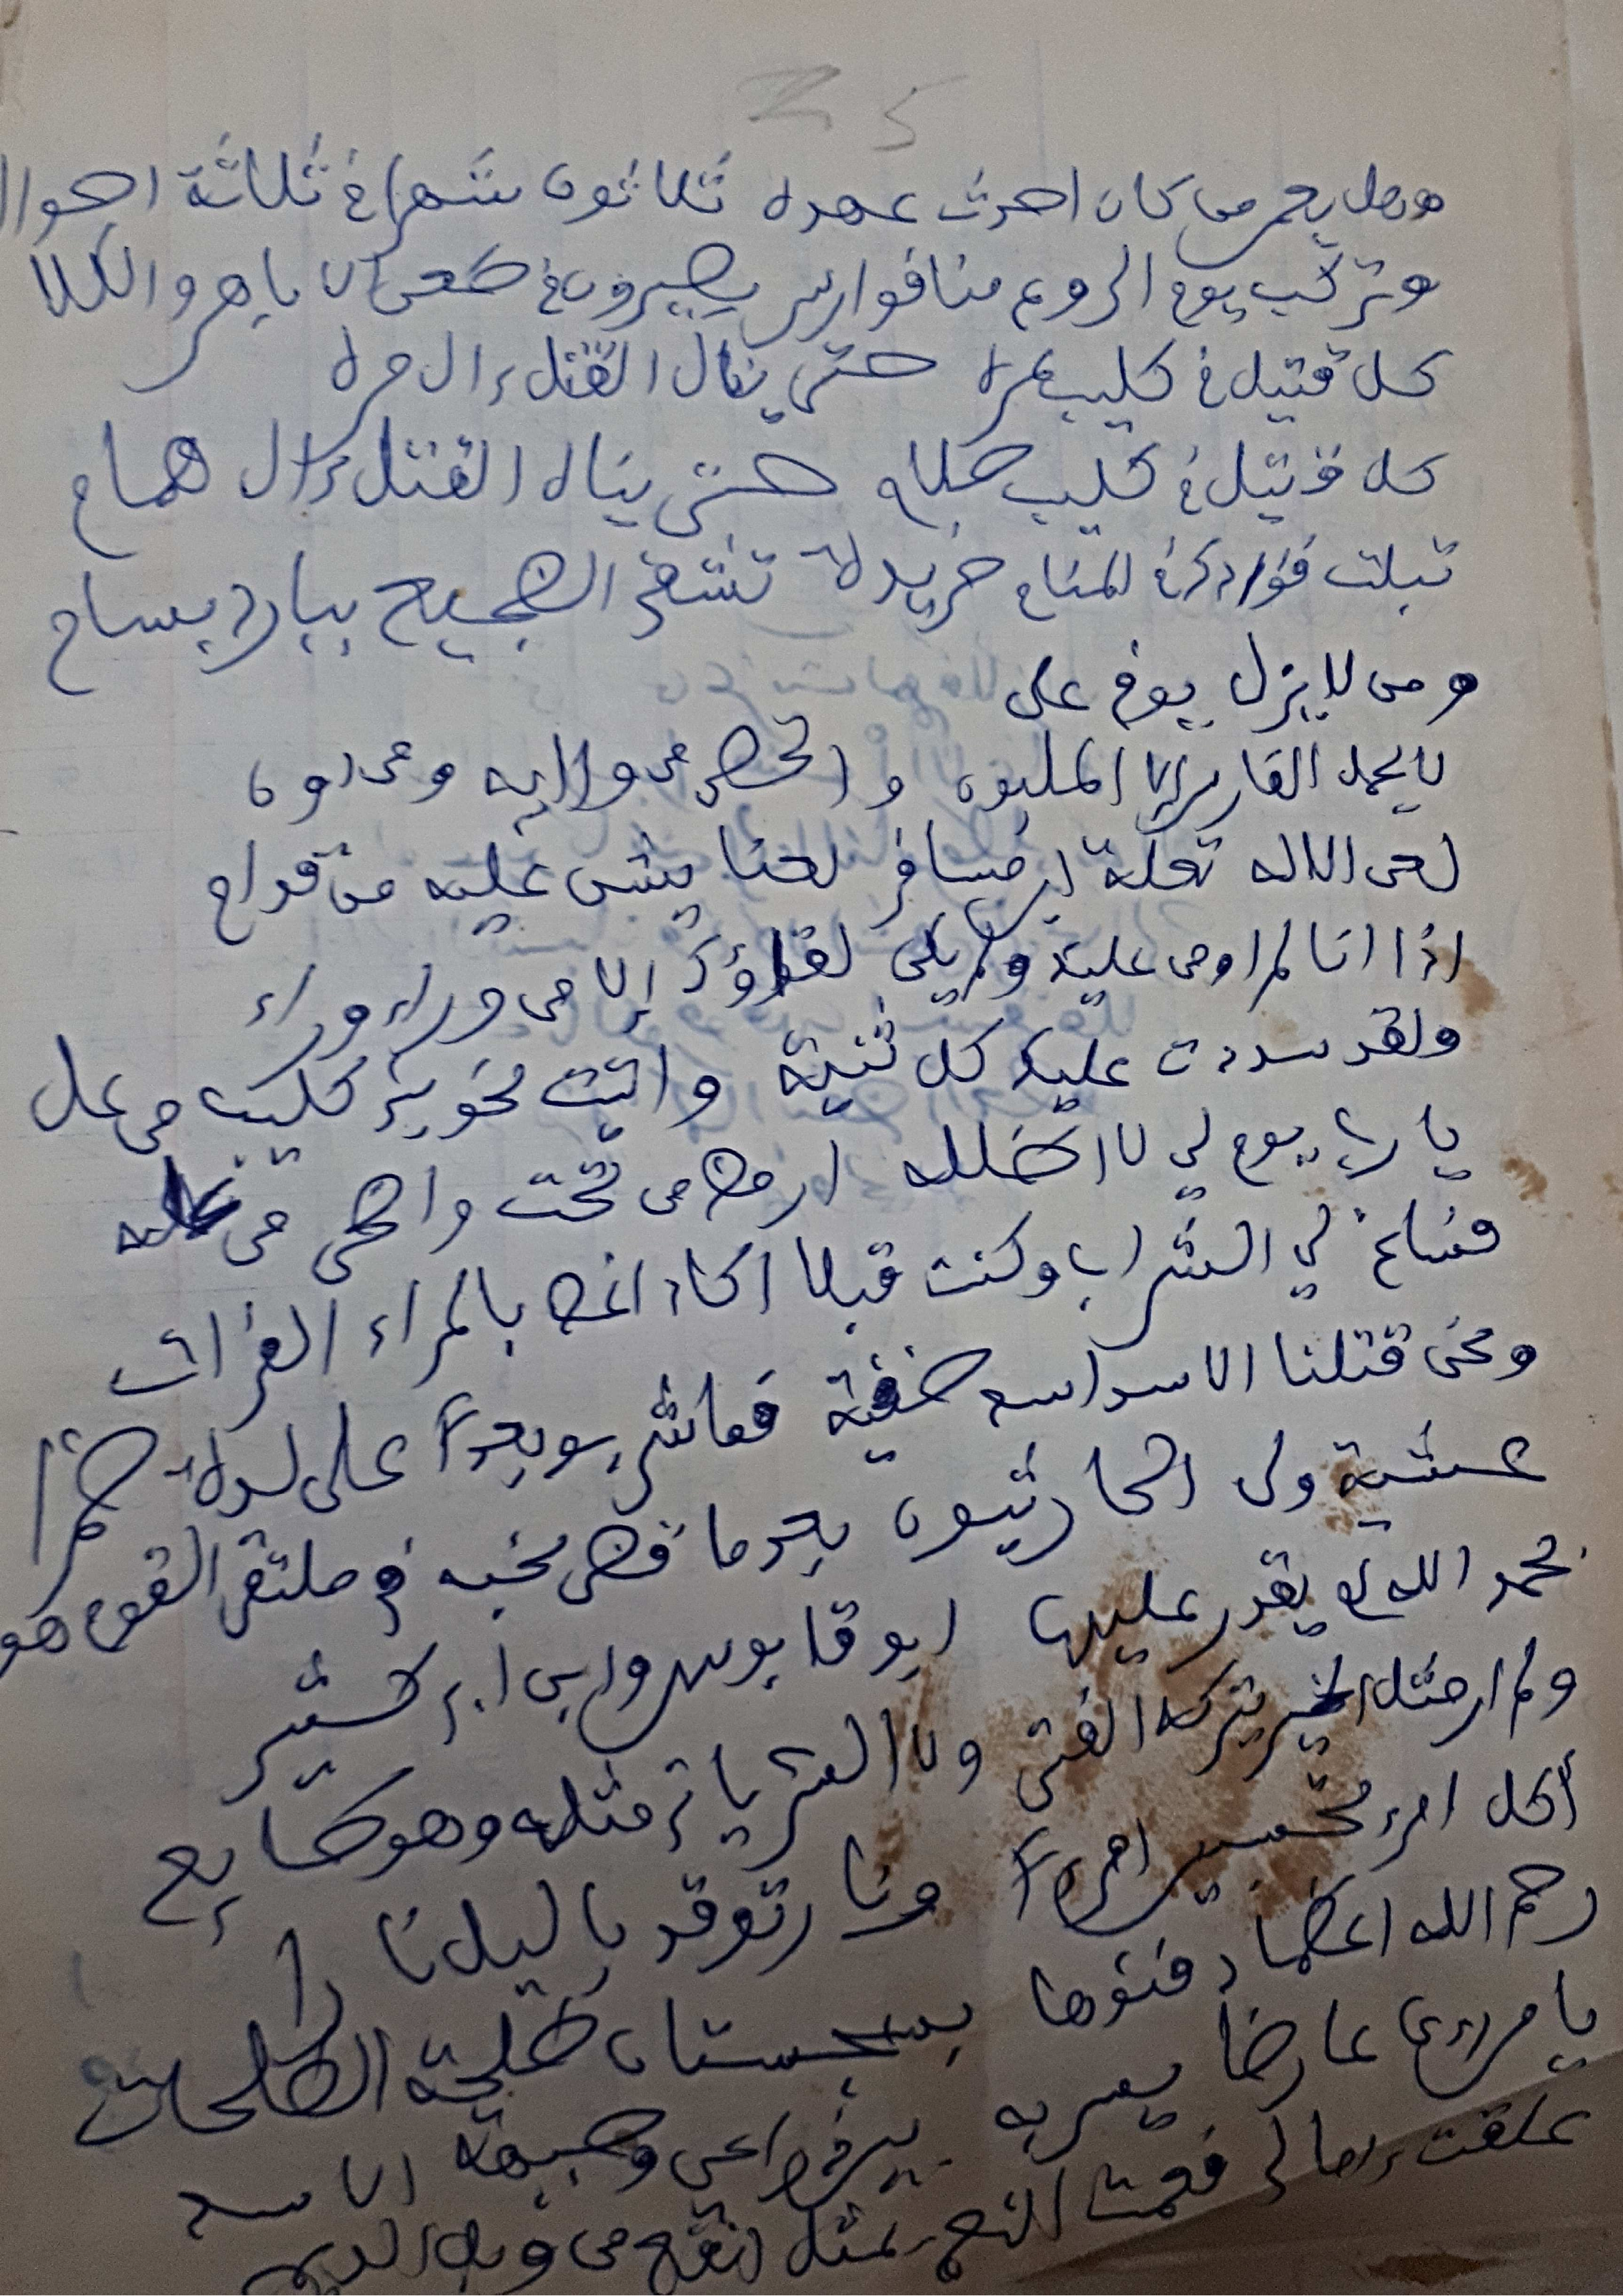 25
وهل يعمر من كان احدث عهده ثلاثون شهرا في ثلاثة احوال
وتركب يوم الروع منا فوارس يصيرون في طعن الاباهر والكلا
كل قتيل في كليب غره حتى ينال القتل ءال مره
كل قتيل في كليب حلام حتى ينال القتل ءال همام
تبلت فؤادك في المنام خريدة تشفى الضجيع ببارد بسام
ومن لا يزل يوف على
لا يحمل الفارس الا الملبون والمحض من ولايه ومن دون
لعن الاله تعلة ابن مسافر لعنا يشن عليه من قدام
اذا انا لم اومن عليك ولم يكن لقاؤك إلا من وراء وراء
ولقد سددت عليك كل ثنية واتيت نحو بني كليب من عل
يا رب يوم لي لا اظلله ارمض من تحت واضحى من عله
فساغ لي الشراب وكنت قبلا اكاد اغص بالمراء الفرات
ونحن قتلنا الاسد اسد خفية فما شربو بعدا على لدة خمرا
عشية ولى الحارثيون بعد ما قضى نحبه في ملتقى القوم هو
بحمد الله لم يقدر عليها ابو قابوس وابن ابي كثير
ولم ار مثل الخير يتركه الفتى ولا الشر ياتي مثله وهو طايع
أكل امرء تحسبين امرءا ونار توقد باليل نارا
رحم الله اعظما دفنوها بسجستان طلحة الطلحات
يا من رءى عارضا يسر به بين ذراعي وجبهة الاسد
علقت ءامالى فعمت النعم بمثل انفع من وبل الديم